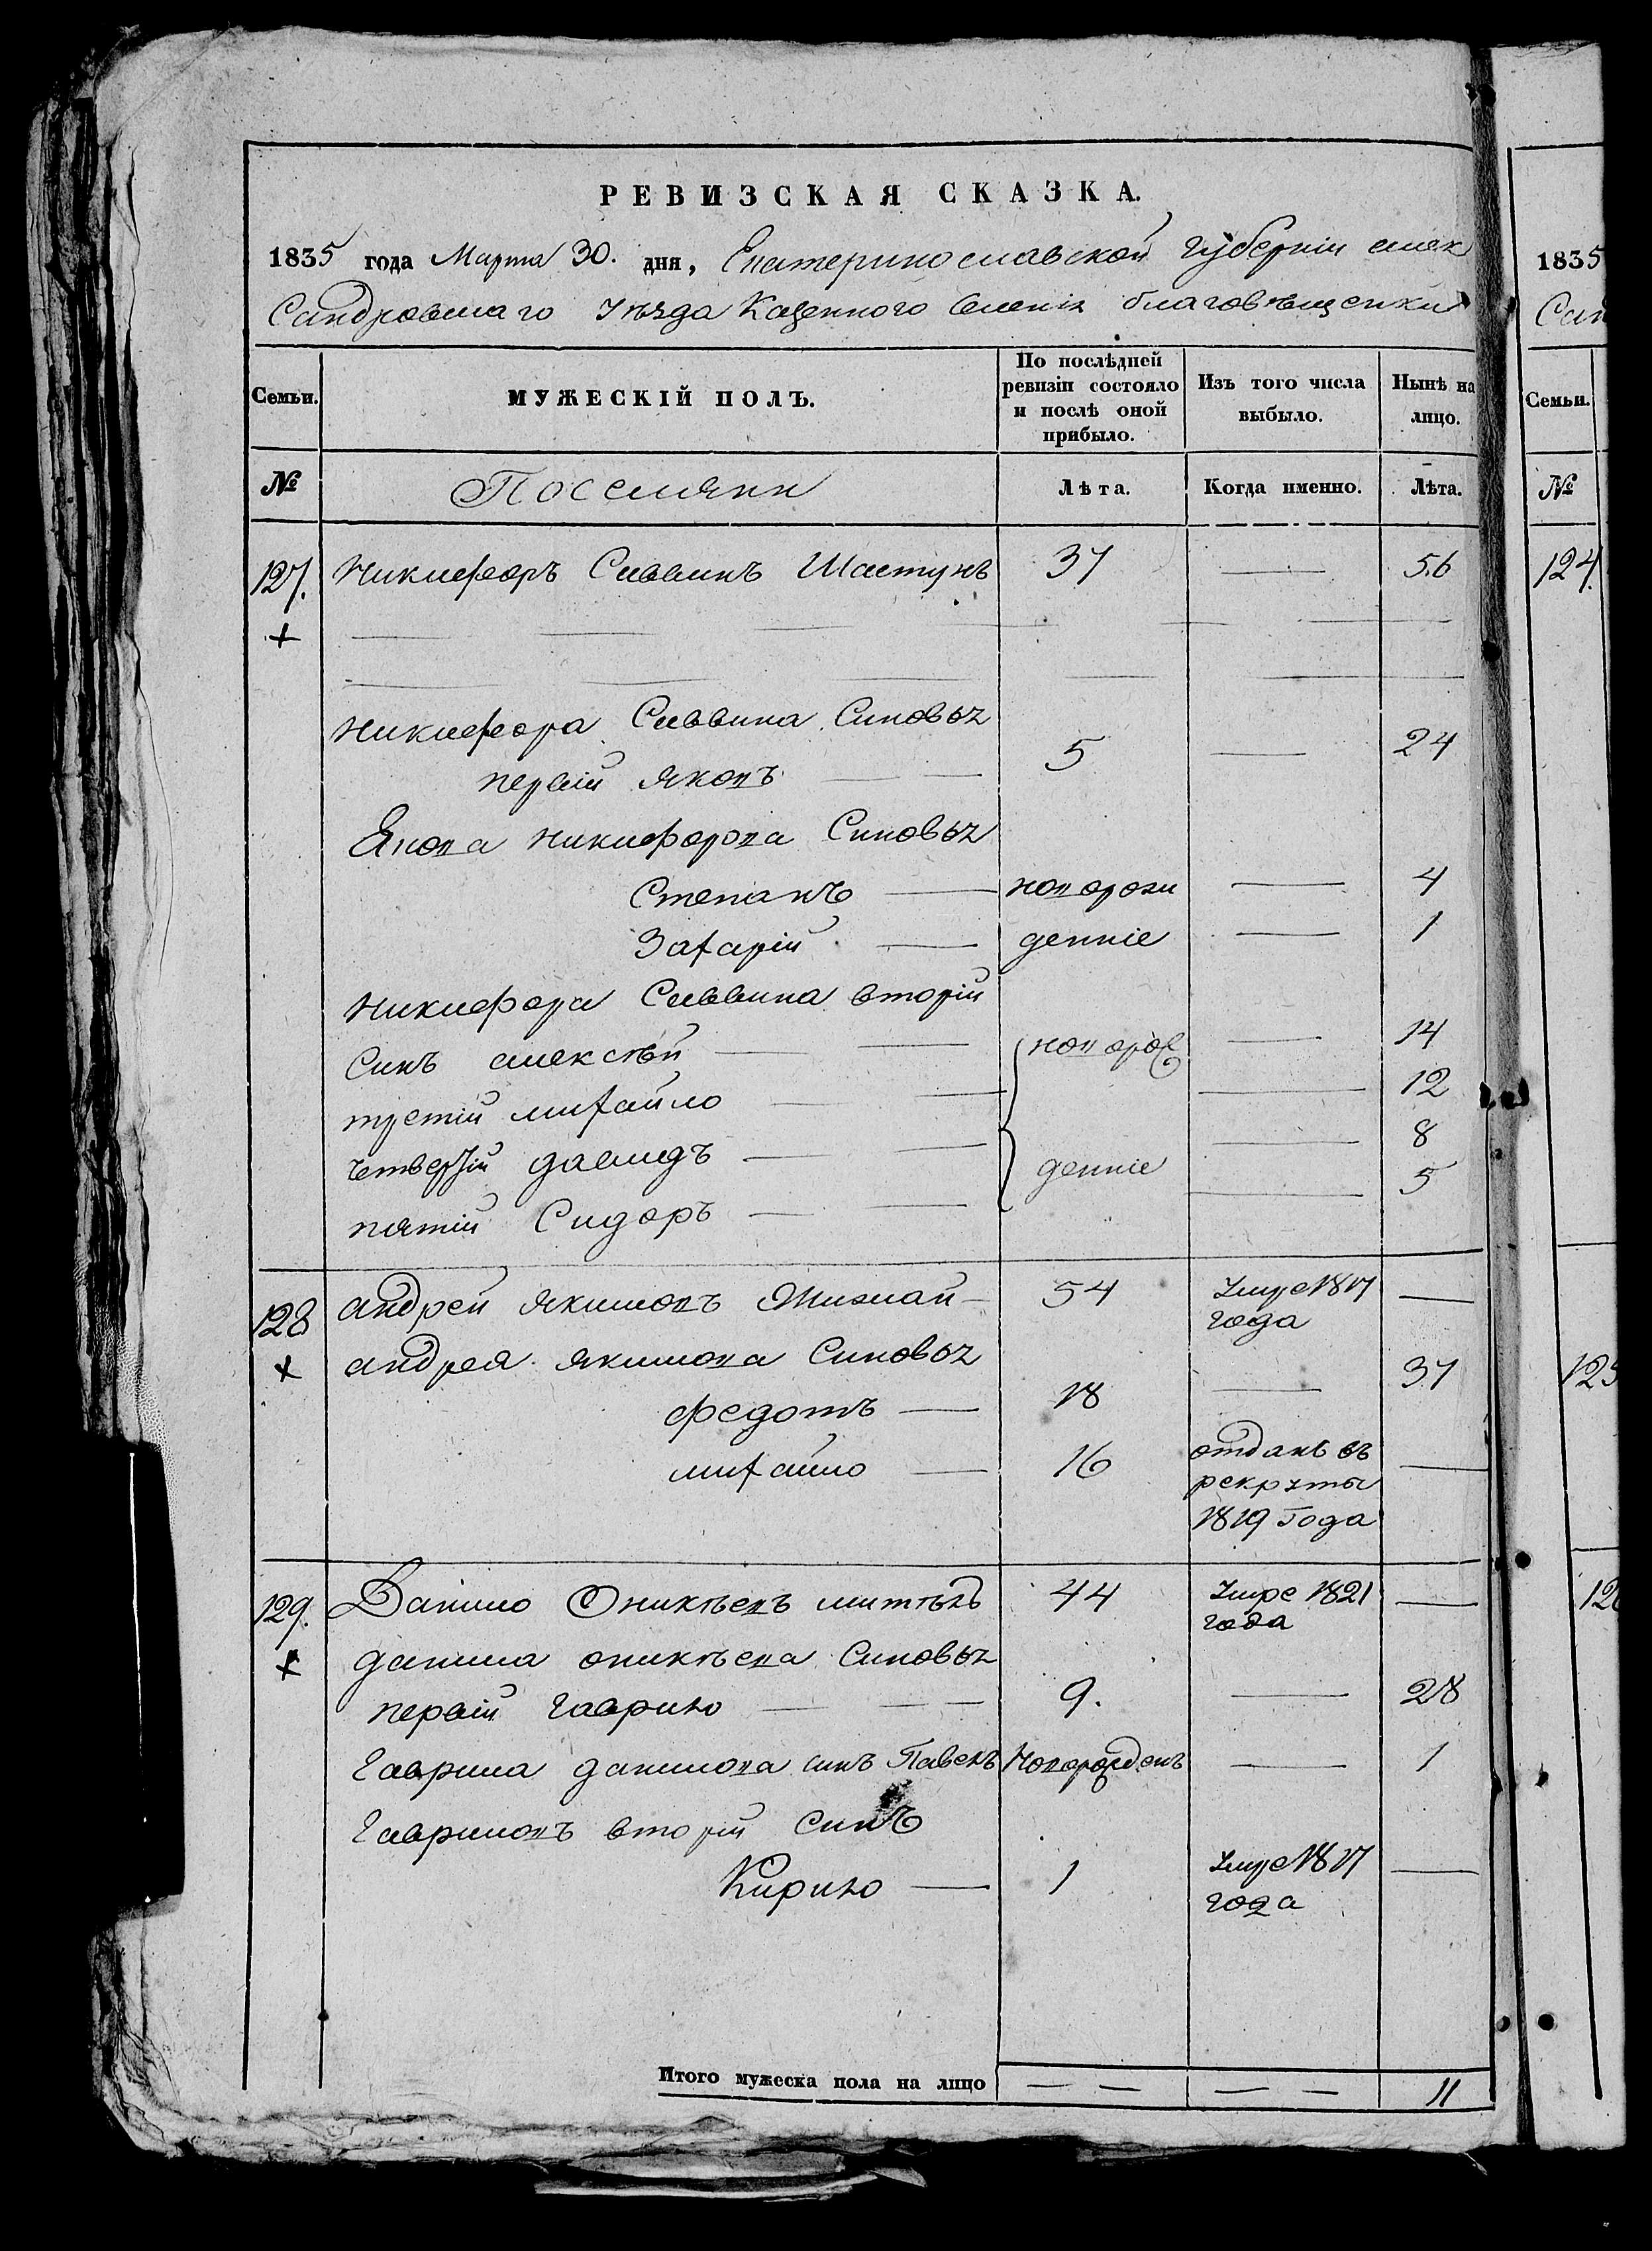 РЕВИЗСКАЯ СКАЗКА.
1835 года Марта 30. дня, Екатеринославской Губерніи алек
Сандровскаго Уѣзда Казенного Селенія благовѣщенки
Семьи.
МУЖЕСКІЙ ПОЛЪ.
По послѣдней ревизіи состояло и послѣ оной прибыло.
Изъ того числа выбыло.
Нынѣ на лицо.
№ Поселяни Лѣта. Когда именно. Лѣта.
127. Никифоръ Саввинъ Шастунъ 37 — 56
+
Никифора Саввина Синовья
первій Яковъ — 5 — 24
Якова Никифорова Синовья
Степанъ — новорож — 4
Захарій — денніе — 1
Никифора Саввина вторій
синъ алексѣй — новорож — 14
третій михайло — 12
четвертій давидъ — денніе — 8
пятій Сидоръ — 5
128 андрей якимовъ 54 Умре 1817 года —
+ андрея якимова Синовья
федотъ — 18 — 37
михайло — 16 отданъ въ —
рекруты
1819 Года
129. Данило Оникѣевъ 44 Умре 1821 года —
+ данила оникѣева Синовья
первій гаврило — 9. — 28
гаврила данилова синъ Павелъ Новорожденъ — 1
вторій Синъ
Кирило — 1 Умре 1817 —
года
Итого мужеска пола на лицо — — — — 11
1835
Сан
Семьи.
№
124.
125
126